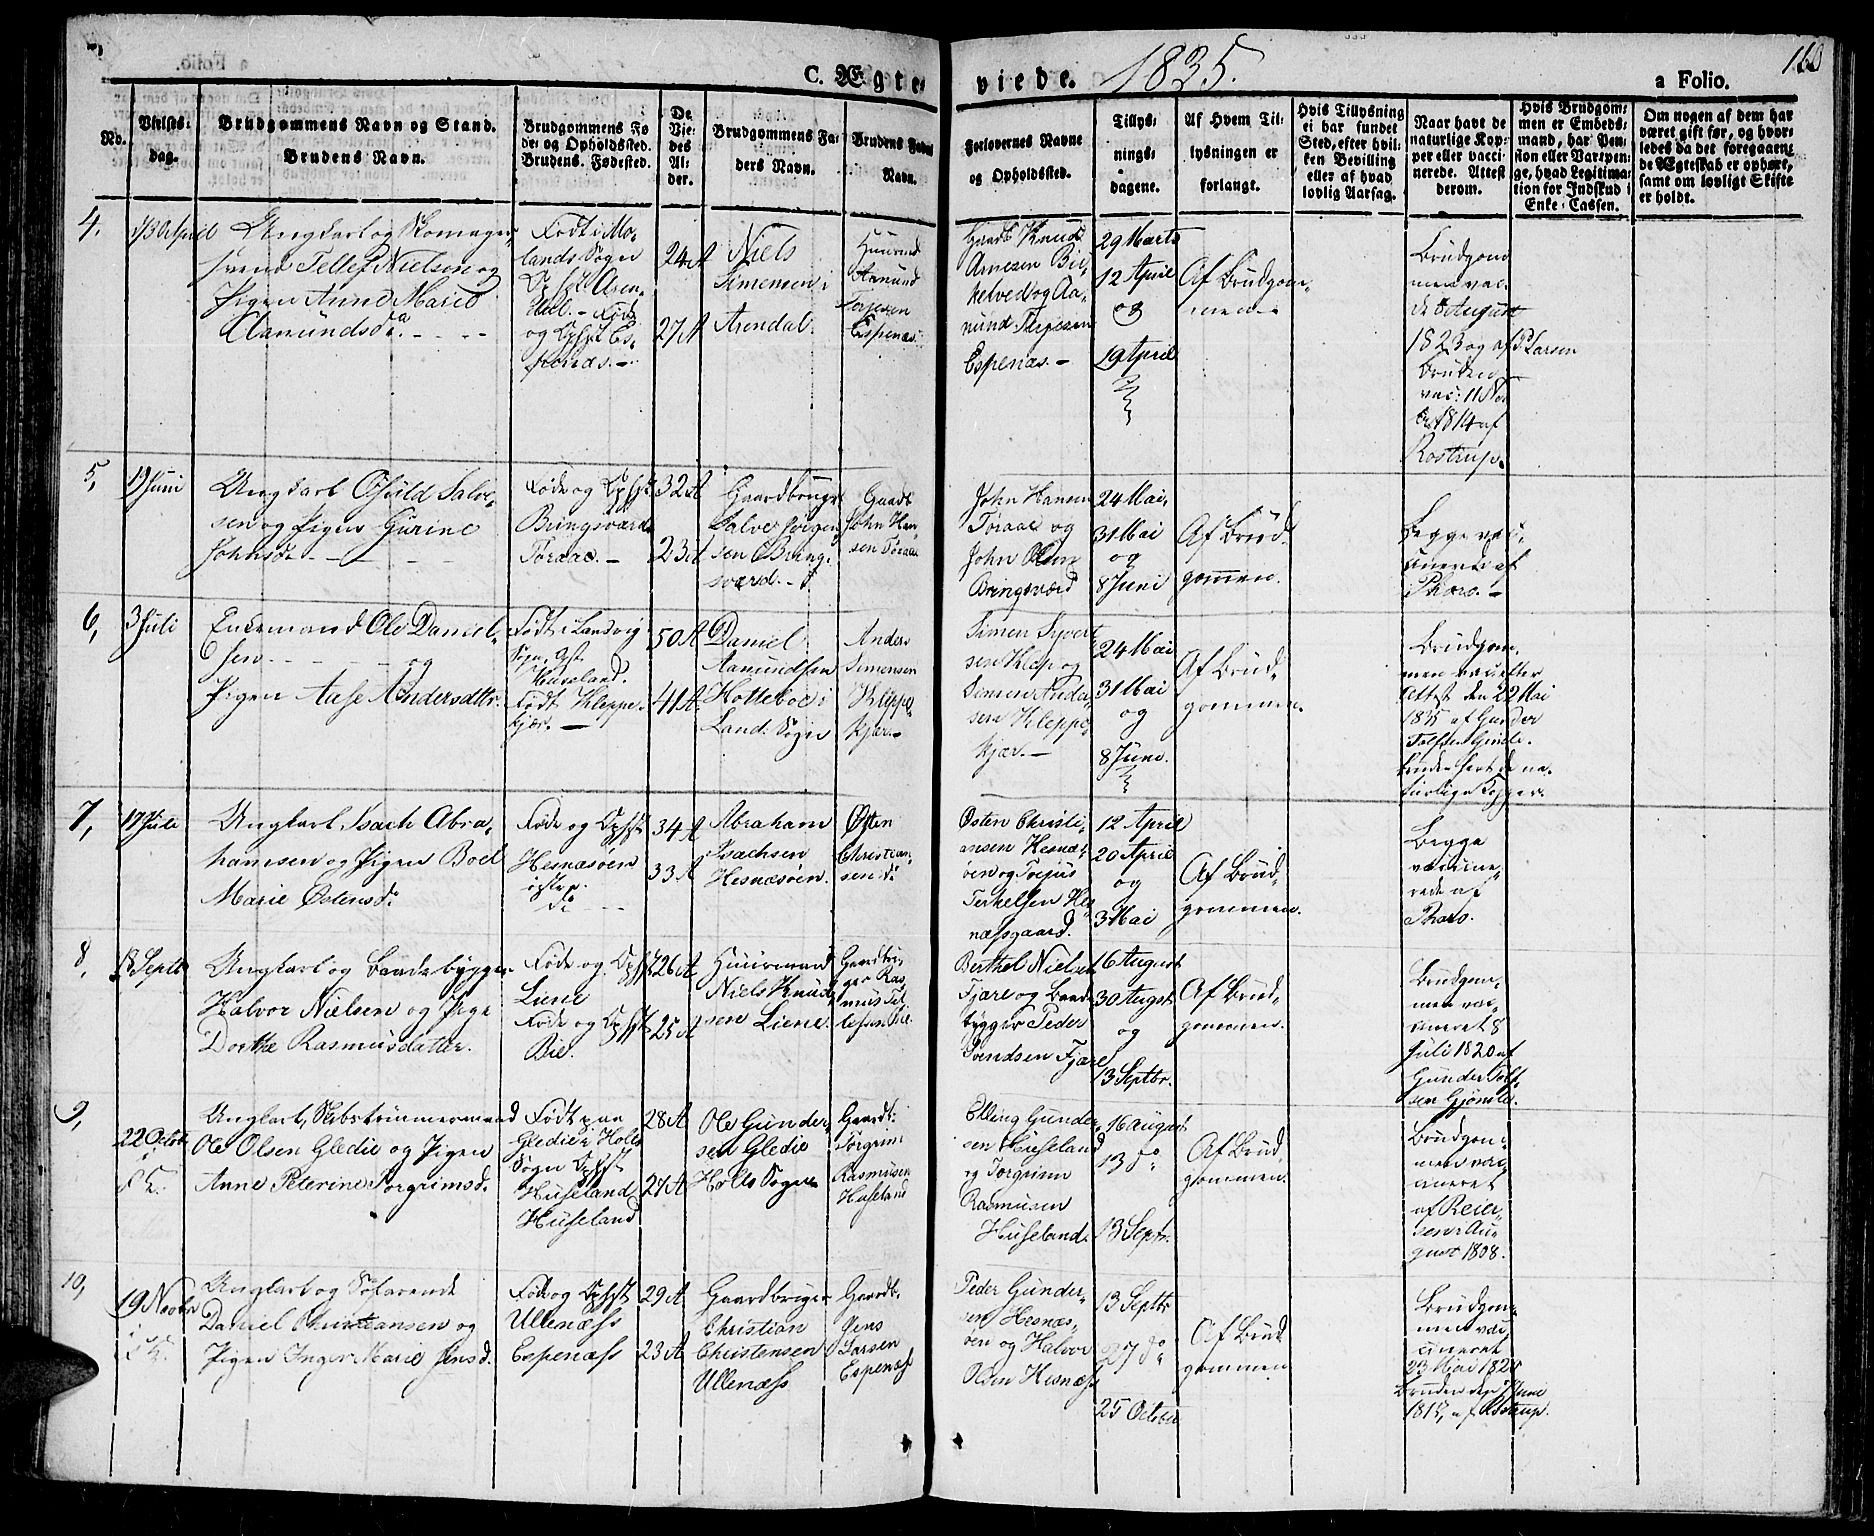 C. Ægte-
viede. 1835.
a Folio.
160
No.
Vielses-
dag.
Brudgommens Navn og Stand.
Brudens Navn.
Brudgommens Fø-
de- og Opholdssted.
Brudens Fødested.
De
Vie-
des
Al-
der.
Brudgommens Fa-
ders Navn.
Brudens Faders
Navn.
Forlovernes Navne
og Opholdssted.
Tillys-
nings-
dagene.
Af Hvem Til-
lysningen er
forlangt.
Hvis Tillysning
ei har fundet
Sted, efter hvil-
ken Bevilling
eller af hvad
lovlig Aarsag.
Naar havt de
naturlige Kop-
per eller vacci-
nerede. Attest
derom.
Hvis Brudgom-
men er Embeds-
mand, har Pen-
sion eller Vartpen-
ge, hvad Legitima-
tion for Indskud i
Enke-Cassen.
Om nogen af dem har
været gift før, og hvor-
ledes da det foregaaen-
de Ægteskab er ophørt,
samt om lovligt Skifte
er holdt.
4.
Ungkarl og Skomager-
svend Tellef Nielsen og
Pigen Anne Marie
Aamundsda.
Født i Mo-
lands Sogn
24 A
27 A
Niels
Simensen i
Arendal.
Huusmd
Aamund
Espenæs
Gaardb Knud
Arnesen Bie
Espenæs.
29 Marts
12 April
og
19 April
Af Brudgom-
men.
Brudgom
men vac.
1823 og af P. Larsen
Bruden
1814 af
Rostrup.
5,
19 Juni
Ungkarl Osuld Salve-
sen og Pigen Gurine
Johnsdr
Føde og Opht
Bringsværd
Toraae.
32 A
23 A
Gaardbruger
Salve Jørgen-
sen Bring-
sværd.
Gaardb
John Han-
sen Toraae
John Hansen
Toraae og
John Olsen
Bringsværd
24 Mai
31 Mai
og
8 Juni
Af Brud-
gommen.
Begge vac-
cinerede af
Pharo.
6,
3 Juli
Enkemand Ole Daniel-
sen og
Pigen Aase Andersdttr.
Født i Landvig
Sogn, Opht
Huseland.
Født Kleppe-
kjær.
50 A
41 A
Daniel
Aamundsen
Holteboe i
Land: Sogn
Anders
Simensen
Kleppe
kjær.
Simen Syvert
sen Klep og
Simen Anders
sen Kleppe-
kjær.
24 Mai
31 Mai
og
8 Juni.
Af Brud-
gommen.
Brudgom-
men vac efter
Attest den 22 Mai
1835 af Gunder
Bruden havt de na-
turlige Kopper.
7,
17 Juli
Ungkarl Isach Abra-
hamsen og Pigen Boel
Marie Østensd.
Føde og Opht
Hesnæsøen
34 A
33 A
Abraham
Isachsen
Hesnæsøen.
Østen
Christian-
sen
Østen Christi-
ansen Hesnæs-
øen og Torjus
Terkelsen Hes
næsgaard.
12 April
20 April
og
3 Mai
Af Brud-
gommen.
Begge
vaccine-
rede af
Pharo.
8,
18 Septbr
Ungkarl og Baadebygger
Halvor Nielsen og Pige
Dorthe Rasmusdatter.
Føde og Opht
Liene
Føde og Opht
Bie.
26 A
25 A
Huusmand
Niels Knud-
sen Liene.
Gaardbru-
ger Ras-
mus Tel
lefsen Bie.
Berthel Nielsen
Fjære og Baad
bygger Peder
Svendsen Fjære
16 August
30 Augst
og
13 Septbr.
Af Brud-
gommen.
Brudgom-
men vac-
cineret 8
Juli 1820 af
Gunder Tolf-
sen
9,
22 Octob
i
F K.
Ungkarl, Skibstømmermand
Ole Olsen Gledie og Pigen
Anne Peterine Torgrimsd.
Født paa
Gledie i Holts
Sogn Opht
Huseland
Huseland
28 A
27 A
Ole Gunder-
sen Gledie
Holts Sogn
Gaardb:
Torgrim
Rasmusen
Huseland
Elling Gunder-
sen Huseland
og Torgrim
Rasmusen
Huseland.
16 August
13 do
13 Septr.
Af Brud-
gommen.
Brudgom-
men vac-
cineret
af Reier-
sen i Au-
gust 1808.
10,
19 Novbr
i
F K.
Ungkarl og Søfarende
Daniel Christiansen og
Pigen Inger Marie Jensd.
Føde og Opht
Ullenæss
Espenæss
29 A
23 A
Gaardbruger
Christian
Christensen
Ullenæss
Gaardb.
Jens
Larsen
Espenæss
Peder Gunder-
sen Hesnæs-
øen og Halvor
Olsen Hesnæss
13 Septbr
27 do
25 October
Af Brud
gommen
Brudgom-
men vac-
cineret
23 Mai 182
Bruden den Juni
181 af Rostrup.